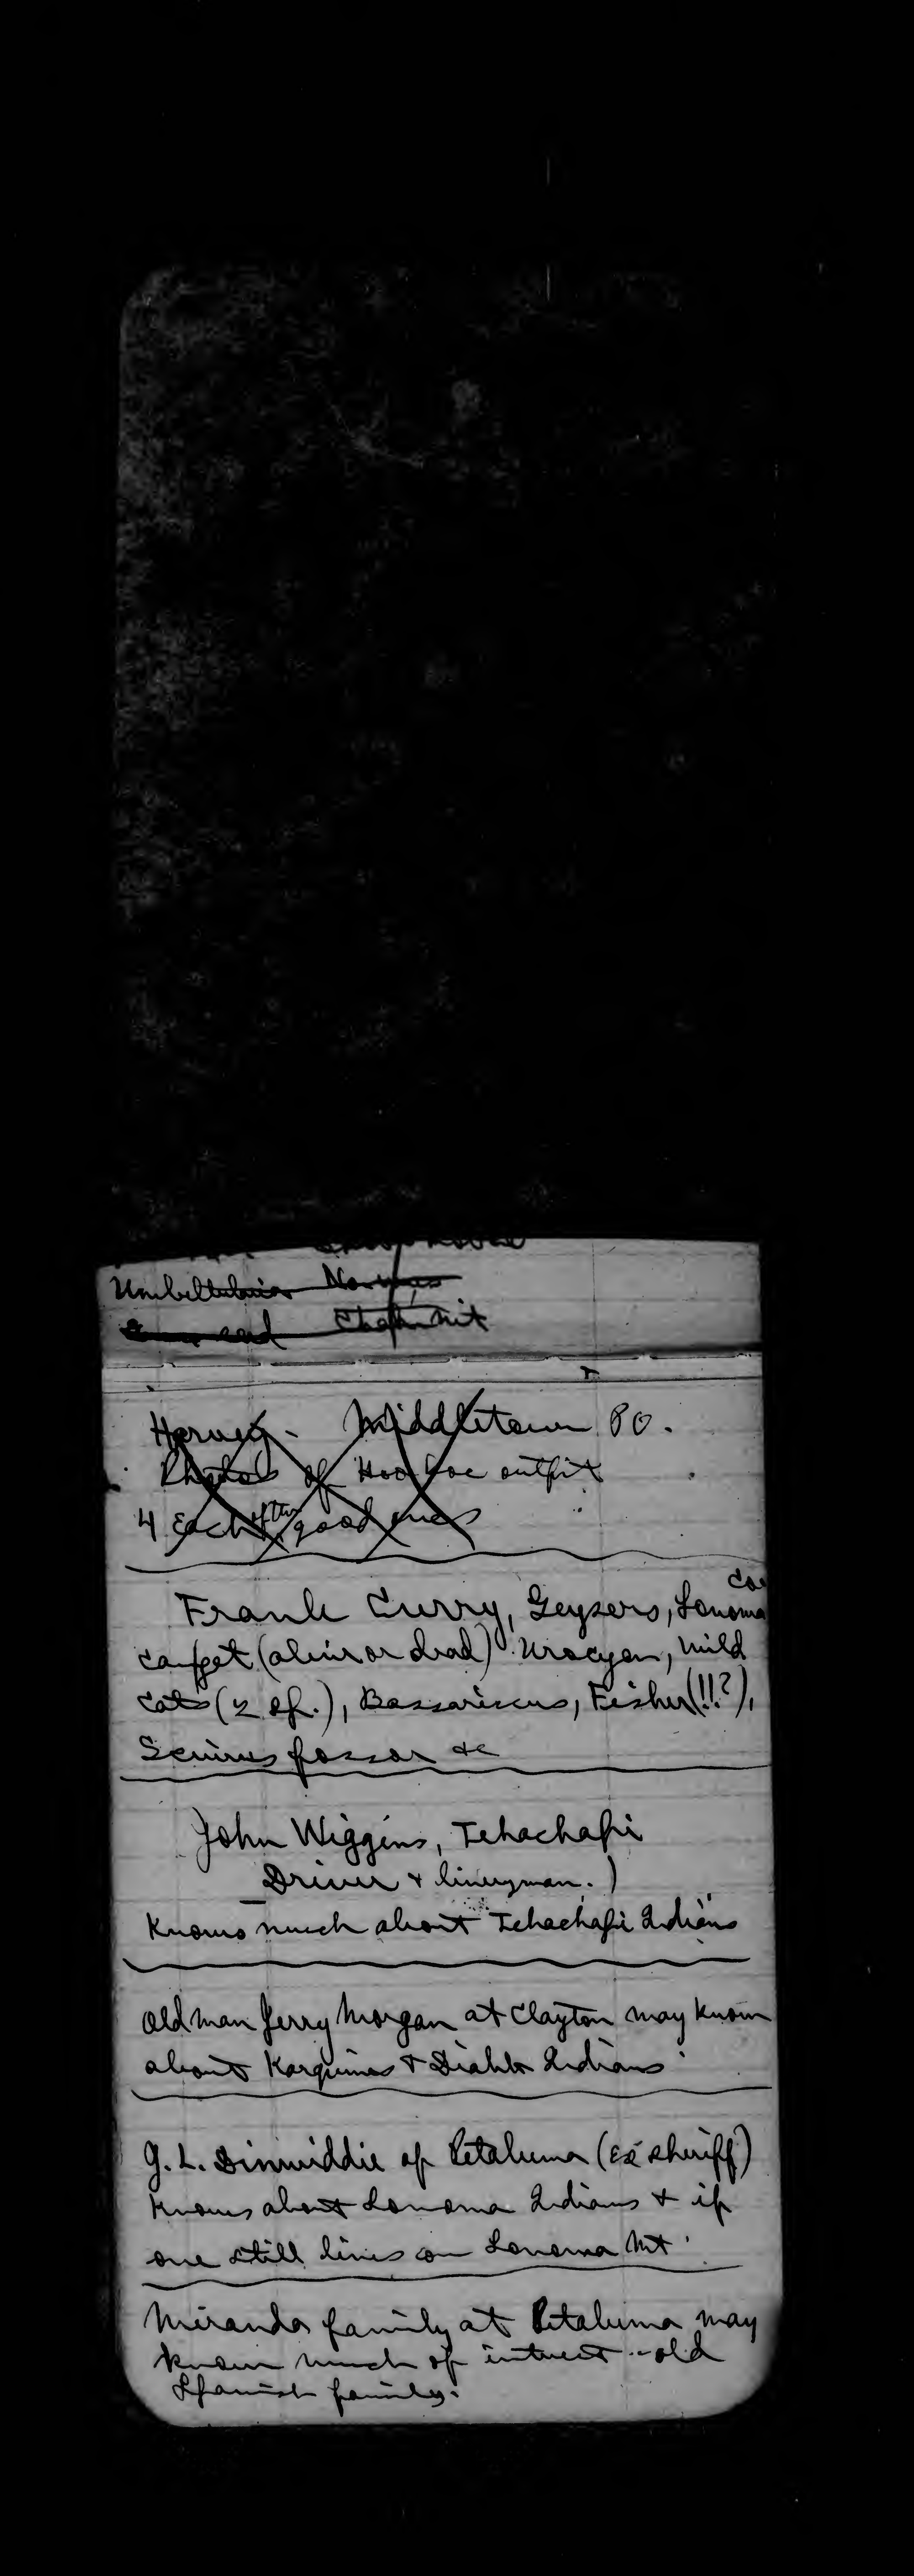 Umbellularia
Harvey - Middletown P.O.
Photos of Hoo hoe outfit
4 Each of the good ones
Frank Curry, Geysers, Sonoma Co
can get (alive or dead) Urocyon, wild
cats (2 sp.), Bassariscus, Fisher (!!?),
Sciurus fossor &c
John Wiggins, Tehachapi
Driver & liveryman.)
Knows much about Tehachapi Indians
Old man Jerry Morgan at Clayton may know
about Karquines & Diablo Indians
G. L. Dinwiddie of Petaluma (Ex sheriff)
knows about Sonoma Indians & if
one still lives on Sonoma Mt.
Miranda family at Petaluma may
know much of interest - old
Spanish family.